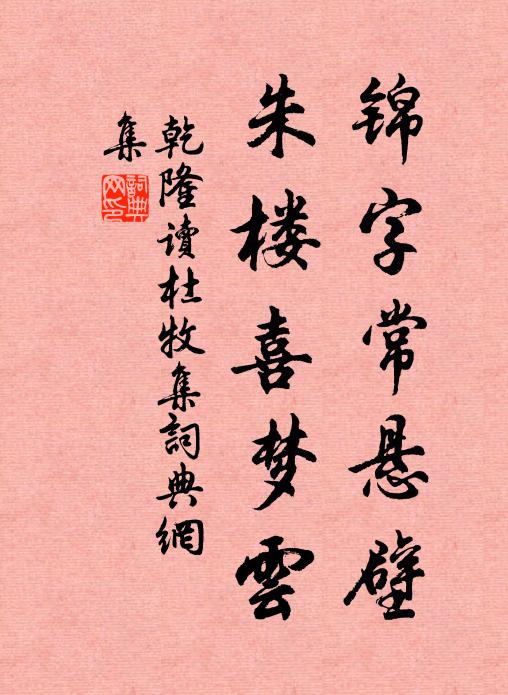 锦字常悬壁
朱楼喜梦雲
乾隆读杜牧集詞典網
集
詞典网印